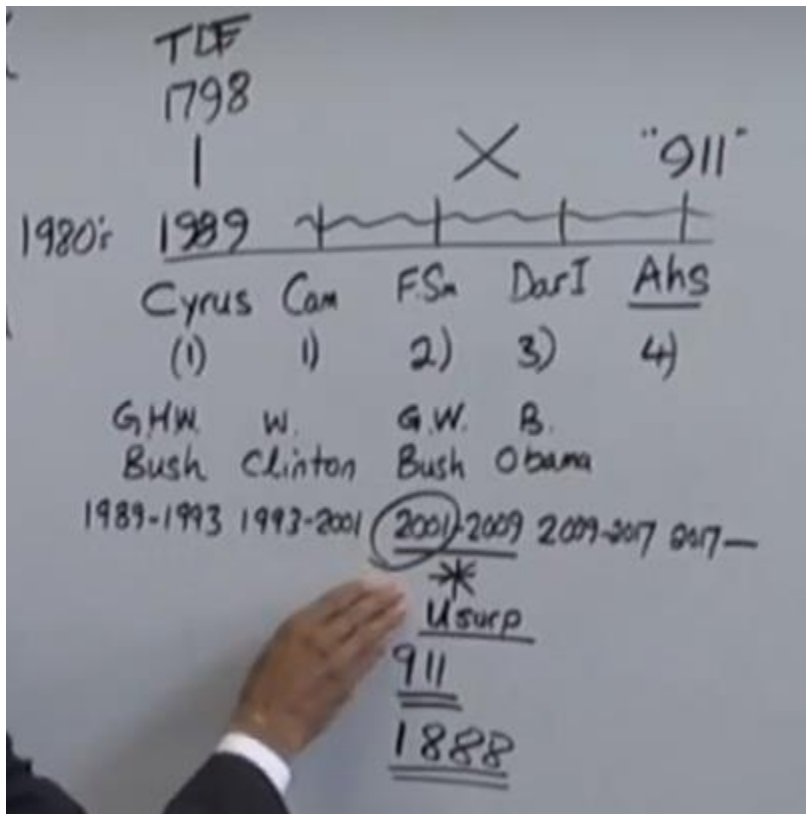 TOE
1798
X "911"
1980's 1989
Cyrus Cam F.Sm Dar I Ahs
(1) 1) 2) 3) 4)
G.H.W. W. G.W. B.
Bush Clinton Bush Obama
1989-1993 1993-2001 2001-2009 2009-2017 2017—
Usurp
911
1888